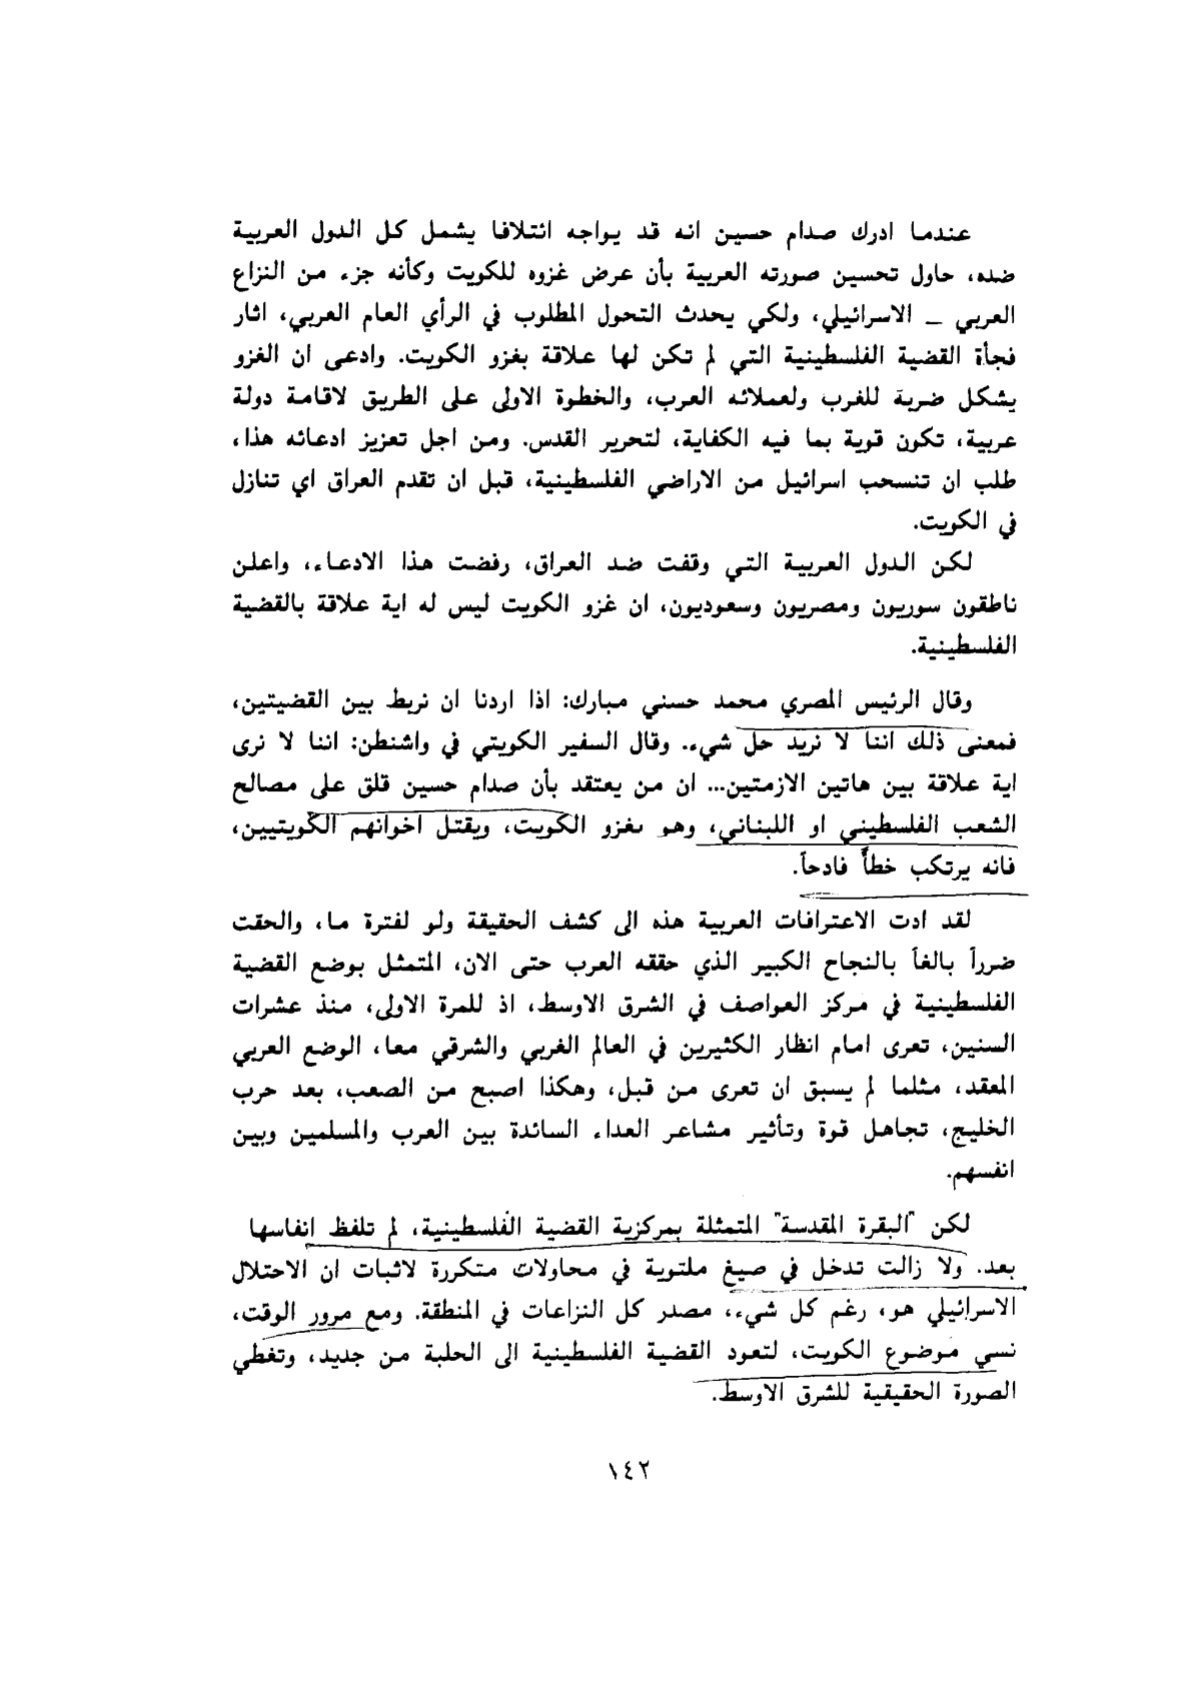 عندما ادرك صدام حسين انه قد يواجه ائتلافا يشمل كل الدول العربية
ضده، حاول تحسين صورته العربية بأن عرض غزوه للكويت وكأنه جزء من النزاع
العربي _ الاسرائيلي، ولكي يحدث التحول المطلوب في الرأي العام العربي، اثار
فجأة القضية الفلسطينية التي لم تكن لها علاقة بغزو الكويت. وادعى ان الغزو
يشكل ضربة للغرب ولعملائه العرب، والخطوة الاولى على الطريق لاقامة دولة
عربية، تكون قوية بما فيه الكفاية، لتحرير القدس. ومن اجل تعزيز ادعائه هذا،
طلب ان تنسحب اسرائيل من الاراضي الفلسطينية، قبل ان تقدم العراق اي تنازل
في الكويت.
لكن الدول العربية التي وقفت ضد العراق، رفضت هذا الادعاء، واعلن
ناطقون سوريون ومصريون وسعوديون، ان غزو الكويت ليس له اية علاقة بالقضية
الفلسطينية.
وقال الرئيس المصري محمد حسني مبارك: اذا اردنا ان نربط بين القضيتين،
فمعنى ذلك اننا لا نريد حل شيء. وقال السفير الكويتي في واشنطن: اننا لا نرى
اية علاقة بين هاتين الازمتين... ان من يعتقد بأن صدام حسين قلق على مصالح
الشعب الفلسطيني او اللبناني، وهو يغزو الكويت، ويقتل اخوانهم الكويتيين،
فانه يرتكب خطأً فادحاً.
لقد ادت الاعترافات العربية هذه الى كشف الحقيقة ولو لفترة ما، والحقت
ضرراً بالغاً بالنجاح الكبير الذي حققه العرب حتى الان، المتمثل بوضع القضية
الفلسطينية في مركز العواصف في الشرق الاوسط، اذ للمرة الاولى، منذ عشرات
السنين، تعرى امام انظار الكثيرين في العالم الغربي والشرقي معا، الوضع العربي
المعقد، مثلما لم يسبق ان تعرى من قبل، وهكذا اصبح من الصعب، بعد حرب
الخليج، تجاهل قوة وتأثير مشاعر العداء السائدة بين العرب والمسلمين وبين
انفسهم.
لكن "البقرة المقدسة" المتمثلة بمركزية القضية الفلسطينية، لم تلفظ انفاسها
بعد. ولا زالت تدخل في صيغ ملتوية في محاولات متكررة لاثبات ان الاحتلال
الاسرائيلي هو، رغم كل شيء، مصدر كل النزاعات في المنطقة. ومع مرور الوقت،
نسي موضوع الكويت، لتعود القضية الفلسطينية الى الحلبة من جديد، وتغطي
الصورة الحقيقية للشرق الاوسط.
١٤٢